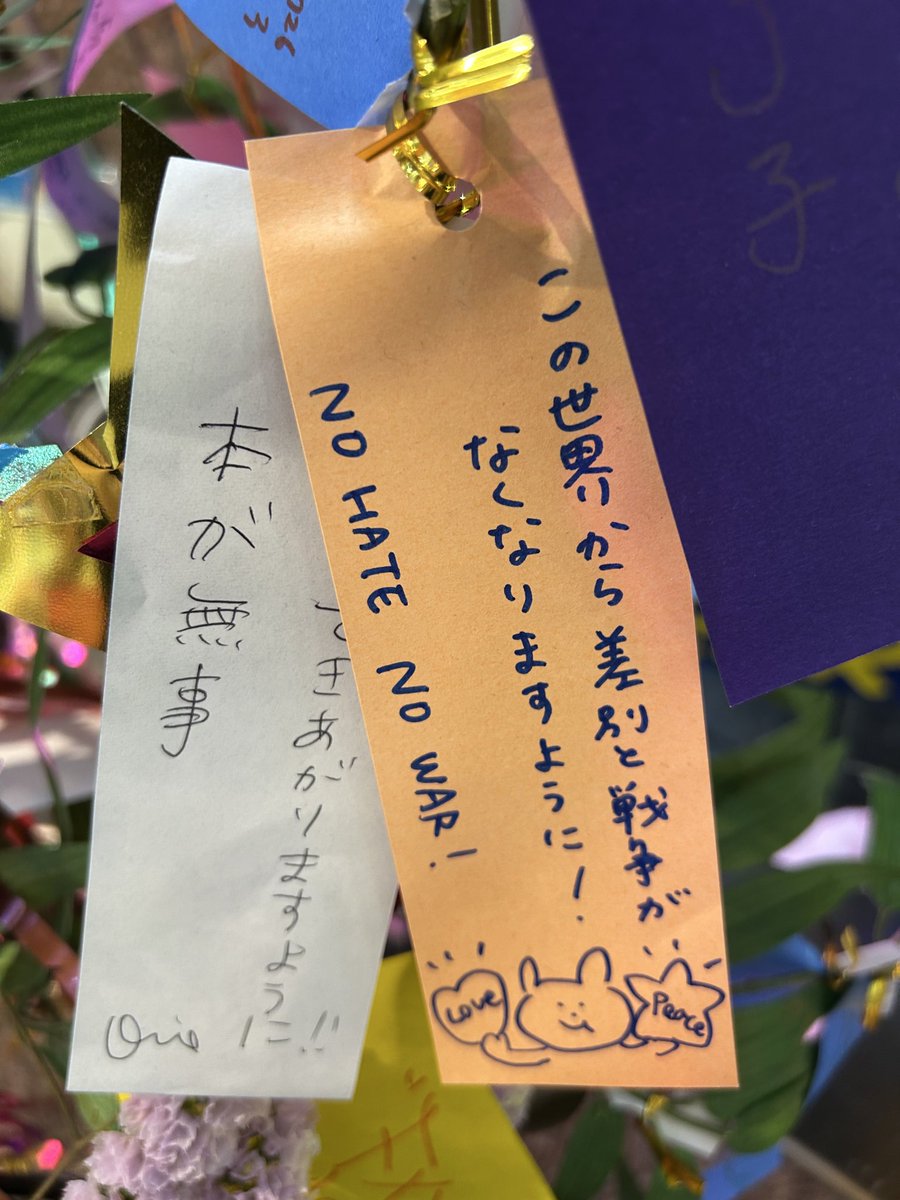 この世界から差別と戦争が
なくなりますように!
NO HATE NO WAR!
Love
Peace
本が無事
できあがりますように!!
子